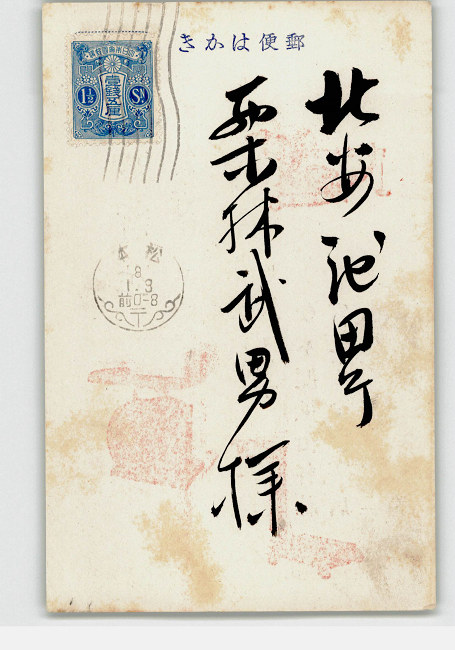 きかは 便郵
大日本帝國郵便
壹錢五厘
1½ Sn.
北安池田町
栗林武男様
松本
8
1.3
前0-8